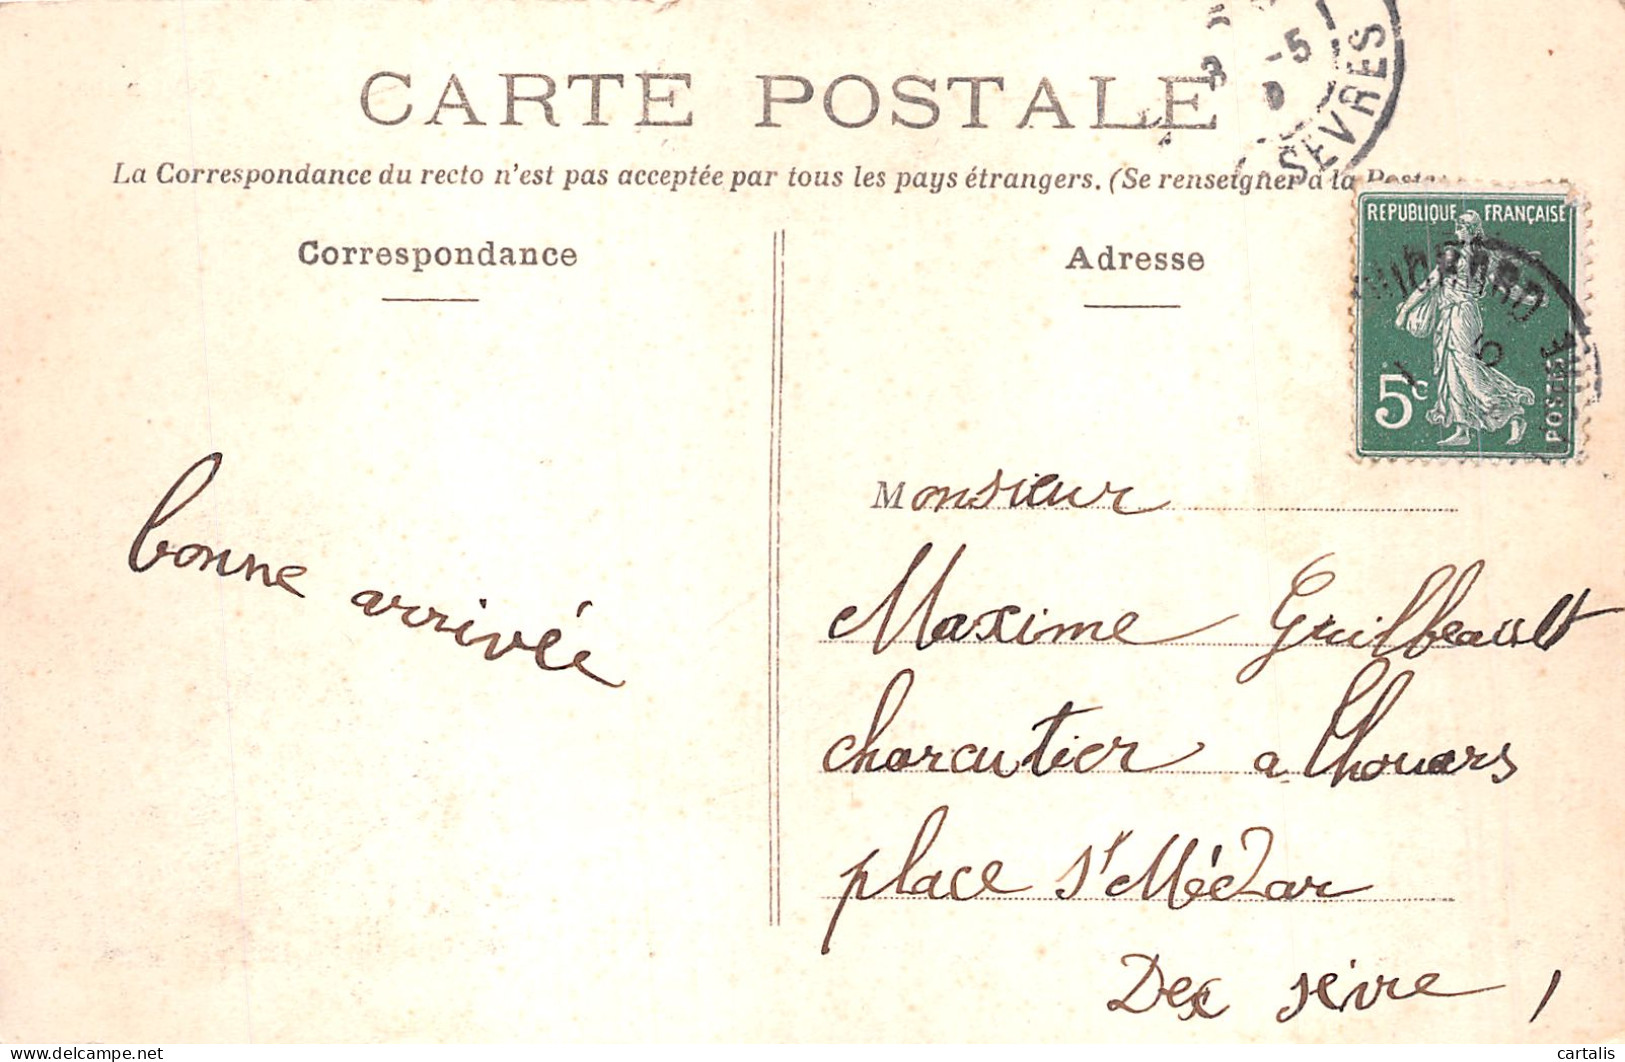 CARTE POSTALE
La Correspondance du recto n'est pas acceptée par tous les pays étrangers. (Se renseigner à la Poste
SEVRES
Correspondance
Adresse
REPUBLIQUE FRANÇAISE
5c
POSTES
bonne arrivée
Monsieur
Maxime Guilbeault
charcutier a Thouars
place St Médar
Dex sèvre
delcampe.net
cartalis